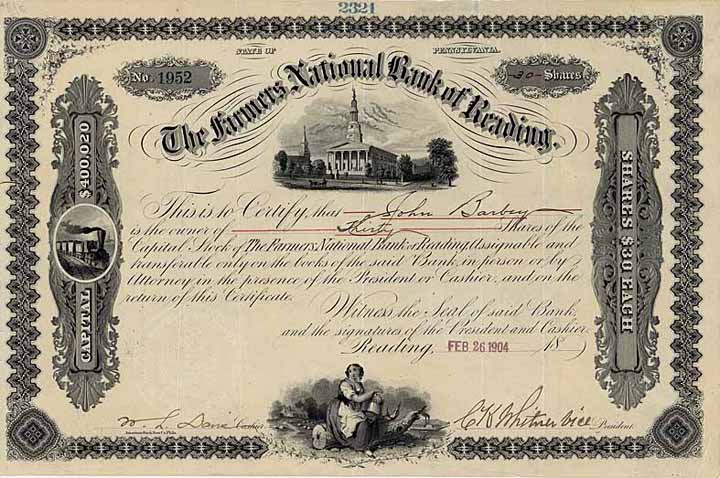 2321
STATE OF PENNSYLVANIA.
No. 1952
-30- Shares
The Farmers National Bank of Reading.
CAPITAL $400,020
SHARES $30 EACH
This is to Certify, that John Barbey
is the owner of Thirty Shares of the
Capital Stock of The Farmers National Bank of Reading Assignable and
transferable only on the books of the said Bank, in person or by
Attorney in the presence of the President or Cashier, and on the
return of this Certificate.
Witness the Seal of said Bank,
and the signatures of the President and Cashier.
Reading, FEB 26 1904 18
W. L. Davis Cashier
C K Whitner Vice President.